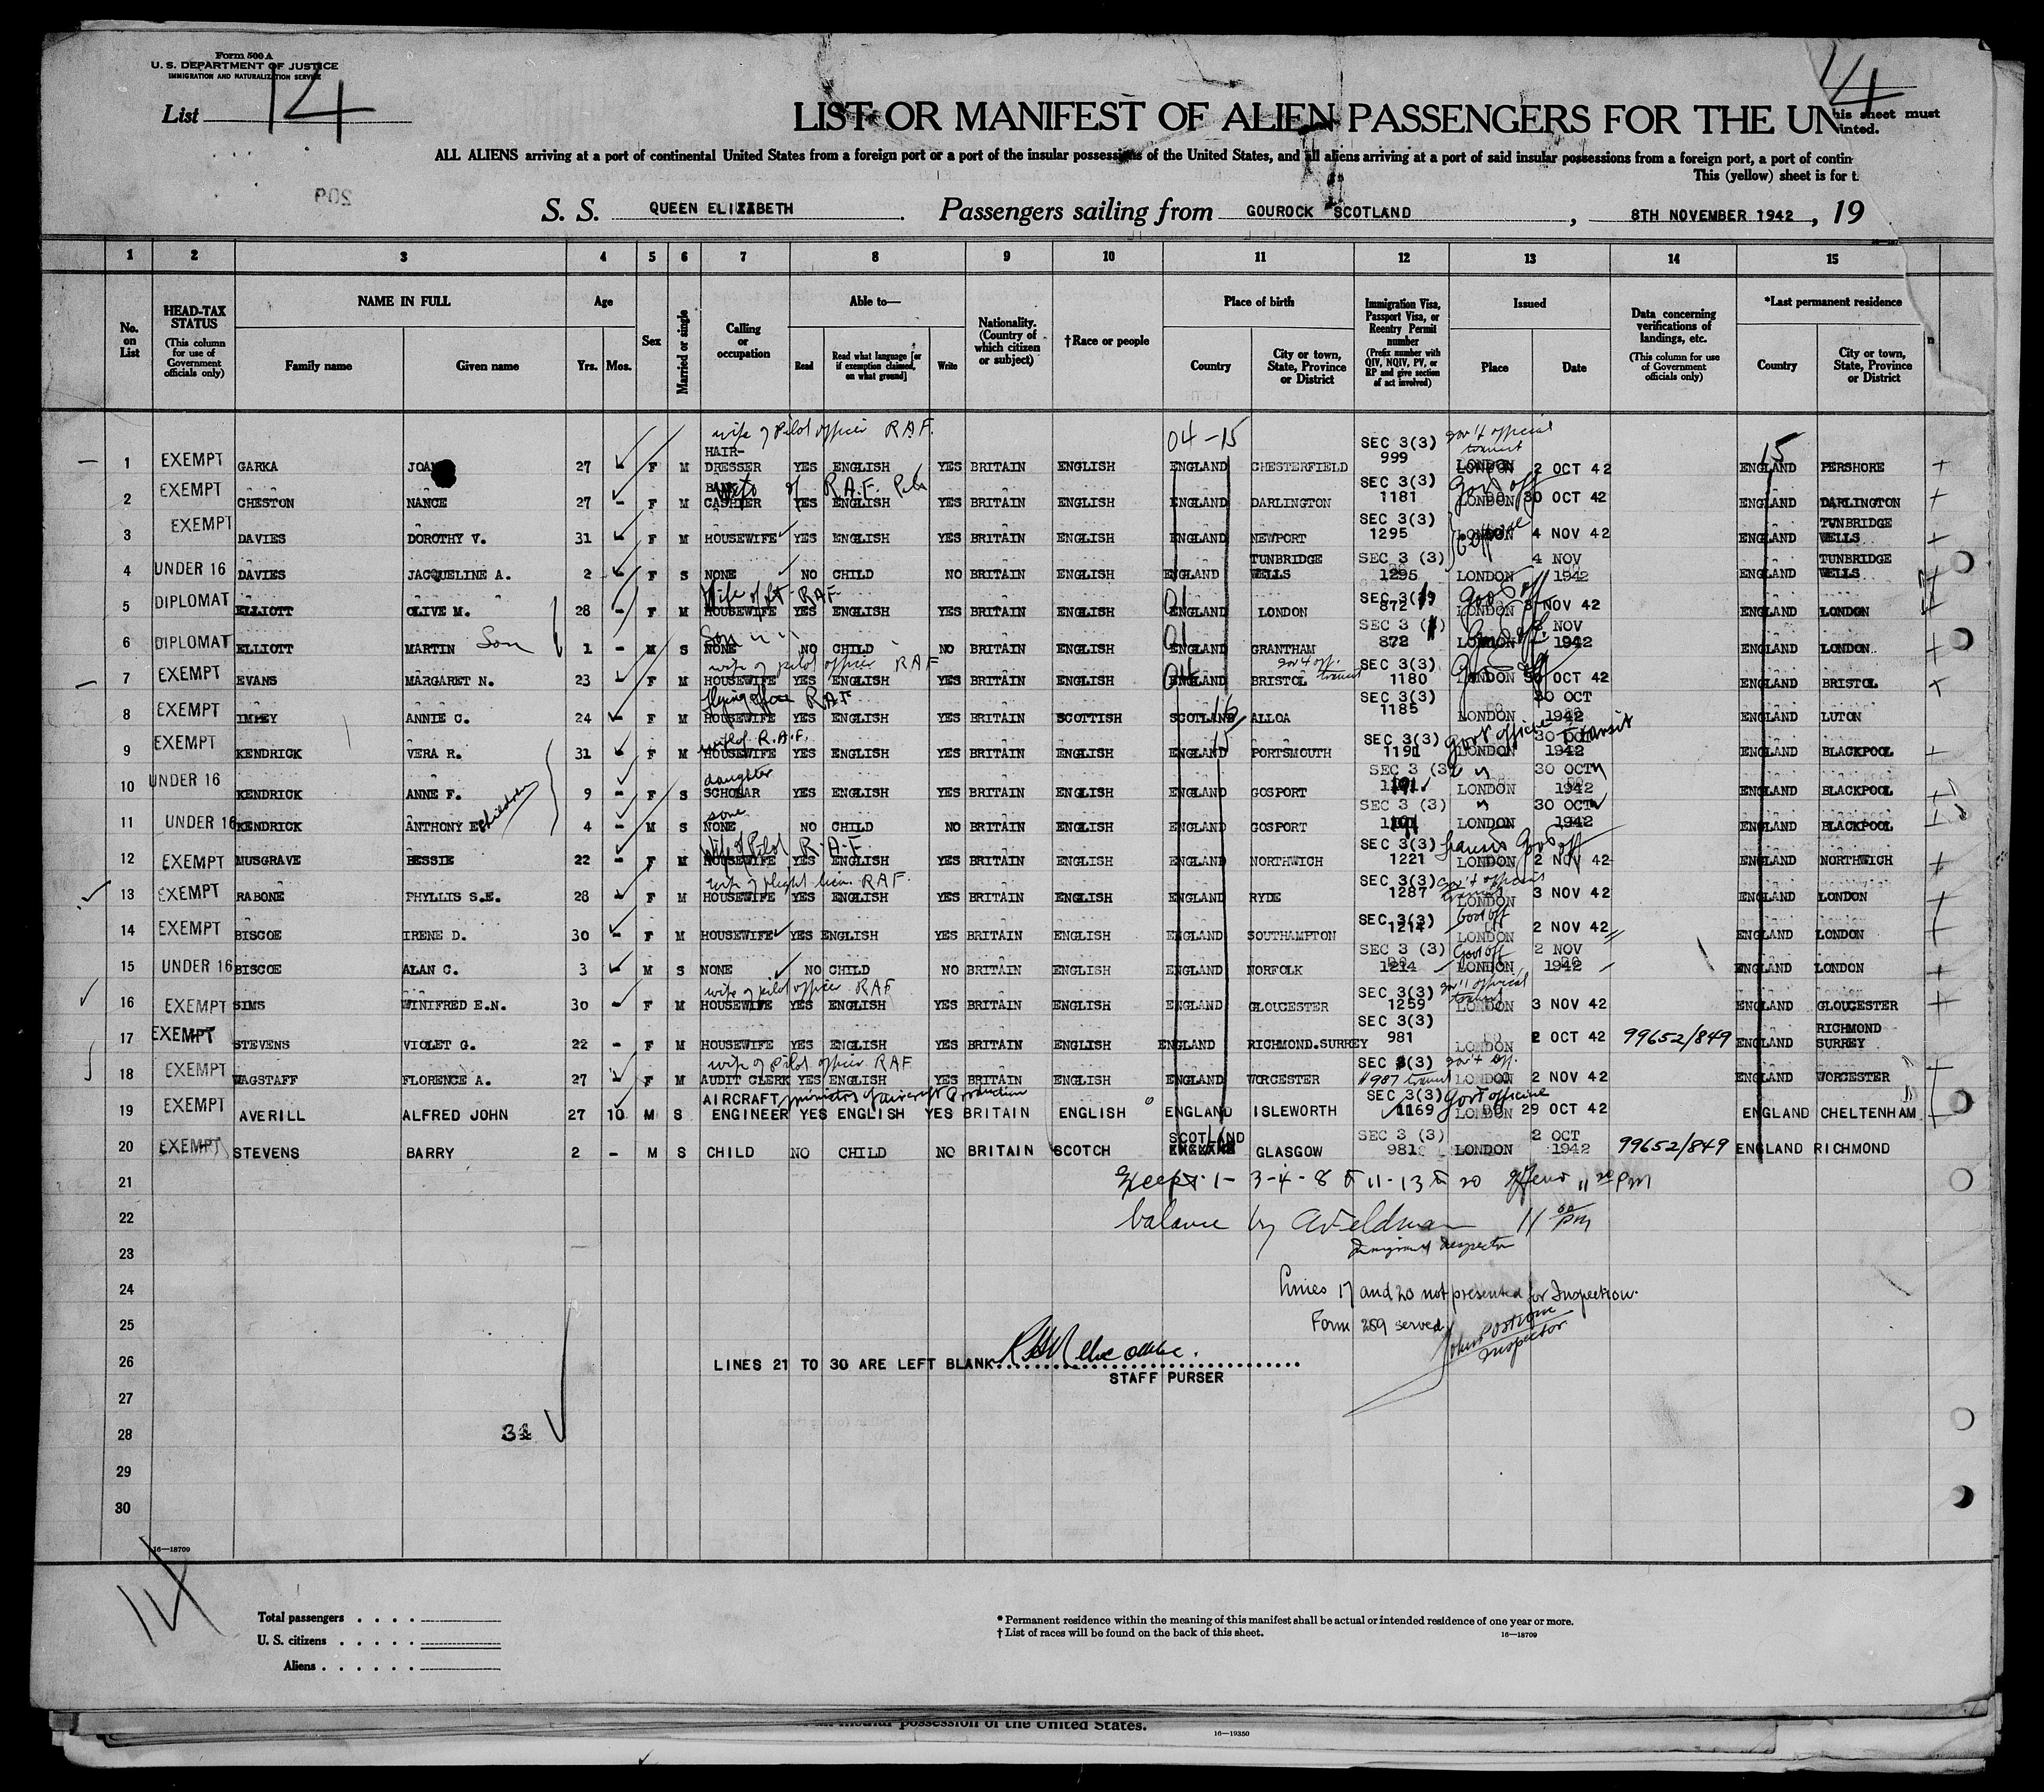 Form 500 A
U. S. DEPARTMENT OF JUSTICE
IMMIGRATION AND NATURALIZATION SERVICE
List 14
14
LIST OR MANIFEST OF ALIEN PASSENGERS FOR THE UN
his sheet must
inted.
ALL ALIENS arriving at a port of continental United States from a foreign port or a port of the insular possessions of the United States, and all aliens arriving at a port of said insular possessions from a foreign port, a port of contin
This (yellow) sheet is for t
S. S. QUEEN ELIZABETH. Passengers sailing from GOUROCK SCOTLAND, 8TH NOVEMBER 1942, 19
1 2 3 4 5 6 7 8 9 10 11 12 13 14 15
No. on List
HEAD-TAX STATUS (This column for use of Government officials only)
NAME IN FULL Family name Given name
Age Yrs. Mos.
Sex
Married or single
Calling or occupation
Able to— Read Read what language [or if exemption claimed, on what ground] Write
Nationality. (Country of which citizen or subject)
†Race or people
Place of birth Country City or town, State, Province or District
Immigration Visa, Passport Visa, or Reentry Permit number (Prefix number with QIV, NQIV, PV, or RP and give section of act involved)
Issued Place Date
Data concerning verifications of landings, etc. (This column for use of Government officials only)
*Last permanent residence Country City or town, State, Province or District
wife of Pilot officer RAF. 04-15 gov't official transit 15
1 EXEMPT GARKA 27 - F M HAIR-DRESSER YES ENGLISH YES BRITAIN ENGLISH ENGLAND CHESTERFIELD SEC 3(3) 999 LONDON 2 OCT 42 ENGLAND PERSHORE
2 EXEMPT CHESTON NANCE 27 - F M BANK CASHIER wife of R.A.F. YES ENGLISH YES BRITAIN ENGLISH ENGLAND DARLINGTON SEC 3(3) 1181 LONDON 30 OCT 42 Gov off ENGLAND DARLINGTON
3 EXEMPT DAVIES DOROTHY V. 31 - F M HOUSEWIFE YES ENGLISH YES BRITAIN ENGLISH ENGLAND NEWPORT SEC 3(3) 1295 LONDON 4 NOV 42 ENGLAND TUNBRIDGE WELLS
4 UNDER 16 DAVIES JACQUELINE A. 2 - F S NONE NO CHILD NO BRITAIN ENGLISH ENGLAND TUNBRIDGE WELLS SEC 3 (3) 1295 LONDON 4 NOV 1942 ENGLAND TUNBRIDGE WELLS
5 DIPLOMAT ELLIOTT OLIVE M. 28 - F M Wife of Lt - RAF HOUSEWIFE YES ENGLISH YES BRITAIN ENGLISH 01 ENGLAND LONDON SEC 3( 872 LONDON 3 NOV 42 Gov off ENGLAND LONDON
6 DIPLOMAT ELLIOTT MARTIN Son 1 - M S Son " " NONE NO CHILD NO BRITAIN ENGLISH 01 ENGLAND GRANTHAM SEC 3 ( 872 LONDON 3 NOV 1942 Gov off ENGLAND LONDON
7 EXEMPT EVANS MARGARET N. 23 - F M wife of pilot officer RAF HOUSEWIFE YES ENGLISH YES BRITAIN ENGLISH 04 ENGLAND BRISTOL gov't off. transit SEC 3(3) 1180 LONDON 30 OCT 42 ENGLAND BRISTOL
8 EXEMPT IMPEY ANNIE C. 24 - F M flying officer RAF HOUSEWIFE YES ENGLISH YES BRITAIN SCOTTISH SCOTLAND ALLOA SEC 3(3) 1185 LONDON 30 OCT 1942 ENGLAND LUTON
9 EXEMPT KENDRICK VERA R. 31 - F M wife of R.A.F. HOUSEWIFE YES ENGLISH YES BRITAIN ENGLISH ENGLAND 15 PORTSMOUTH SEC 3(3) 1191 LONDON 30 OCT 1942 Gov't officer transit ENGLAND BLACKPOOL
10 UNDER 16 KENDRICK ANNE F. children 9 - F S daughter SCHOLAR YES ENGLISH YES BRITAIN ENGLISH ENGLAND GOSPORT SEC 3 (3) 1191 LONDON 30 OCT 1942 ENGLAND BLACKPOOL
11 UNDER 16 KENDRICK ANTHONY E. 4 - M S sone NONE NO CHILD NO BRITAIN ENGLISH ENGLAND GOSPORT SEC 3 (3) 1191 LONDON 30 OCT 1942 ENGLAND BLACKPOOL
12 EXEMPT MUSGRAVE BESSIE 22 - F M Wife of Pilot R.A.F HOUSEWIFE YES ENGLISH YES BRITAIN ENGLISH ENGLAND NORTHWICH SEC 3(3) 1221 LONDON 2 NOV 42 transit Gov off ENGLAND NORTHWICH
13 EXEMPT RABONE PHYLLIS S.E. 28 - F M wife of flight lieu. RAF. HOUSEWIFE YES ENGLISH YES BRITAIN ENGLISH ENGLAND RYDE SEC 3(3) 1287 gov't official transit LONDON 3 NOV 42 ENGLAND LONDON
14 EXEMPT BISCOE IRENE D. 30 - F M HOUSEWIFE YES ENGLISH YES BRITAIN ENGLISH ENGLAND SOUTHAMPTON SEC 3(3) 1214 Govt off LONDON 2 NOV 42 ENGLAND LONDON
15 UNDER 16 BISCOE ALAN C. 3 - M S NONE NO CHILD NO BRITAIN ENGLISH ENGLAND NORFOLK SEC 3 (3) 1214 Govt off LONDON 2 NOV 1942 ENGLAND LONDON
16 EXEMPT SIMS WINIFRED E.N. 30 - F M wife of pilot officer RAF HOUSEWIFE YES ENGLISH YES BRITAIN ENGLISH ENGLAND GLOUCESTER SEC 3(3) 1259 gov't official transit LONDON 3 NOV 42 ENGLAND GLOUCESTER
17 EXEMPT STEVENS VIOLET G. 22 - F M HOUSEWIFE YES ENGLISH YES BRITAIN ENGLISH ENGLAND RICHMOND.SURREY SEC 3(3) 981 LONDON 2 OCT 42 99652/849 ENGLAND RICHMOND SURREY
18 EXEMPT WAGSTAFF FLORENCE A. 27 - F M wife of Pilot officer RAF AUDIT CLERK YES ENGLISH YES BRITAIN ENGLISH ENGLAND WORCESTER SEC 3(3) #987 gov't off. transit LONDON 2 NOV 42 ENGLAND WORCESTER
19 EXEMPT AVERILL ALFRED JOHN 27 10 M S AIRCRAFT ENGINEER ministry of aircraft Production YES ENGLISH YES BRITAIN ENGLISH ENGLAND ISLEWORTH SEC 3(3) 1169 Gov't official LONDON 29 OCT 42 ENGLAND CHELTENHAM
20 EXEMPT STEVENS BARRY 2 - M S CHILD NO CHILD NO BRITAIN SCOTCH SCOTLAND ENGLAND GLASGOW SEC 3 (3) 981 LONDON 2 OCT 1942 99652/849 ENGLAND RICHMOND
21 Except 1- 3-4-8 to 11-13 to 20 PM
22 balance by A Feldman 11 00 PM
23 Immigrant Inspector
24 Lines 17 and 20 not presented for Inspection.
25 Form 259 served. Inspector
26 LINES 21 TO 30 ARE LEFT BLANK
STAFF PURSER
27
28
29
30
16—18709
14
Total passengers
U. S. citizens
Aliens
* Permanent residence within the meaning of this manifest shall be actual or intended residence of one year or more.
† List of races will be found on the back of this sheet.
16—18709
insular possession of the United States.
16—19350